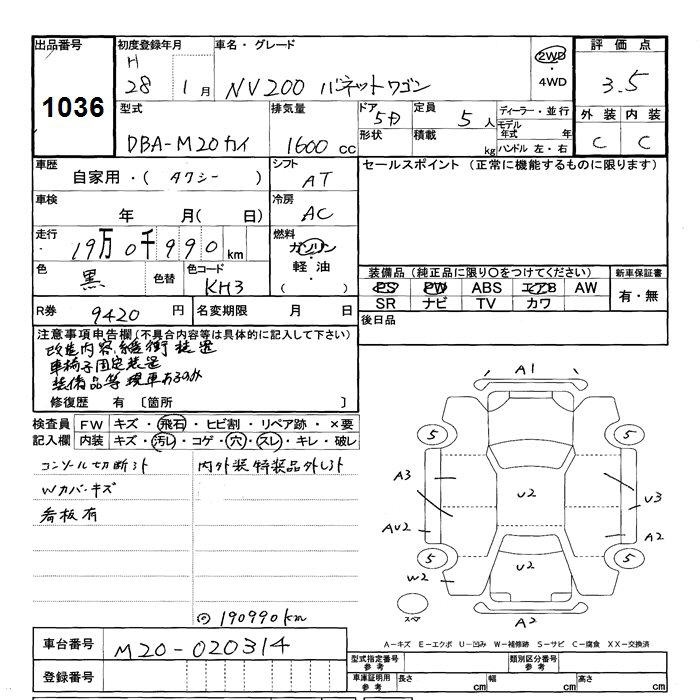 出品番号
1036
初度登録年月
H
28 1月
車名・グレード
NV200 バネットワゴン
2WD
・
4WD
評価点
3.5
外装 内装
C C
型式
DBA-M20カイ
排気量
1600 cc
ドア
5D
形状
定員
5人
積載
kg
ディーラー・並行
モデル
年式 年
ハンドル 左・右
車歴
自家用・( タクシー )
シフト
AT
セールスポイント (正常に機能するものに限ります)
車検
年 月( 日)
冷房
AC
走行
19万0千990 km
燃料
ガソリン
・
軽油
( )
色
黒
色替
色コード
KH3
装備品 (純正品に限り○をつけてください)
PS PW ABS エアB AW
SR ナビ TV カワ
新車保証書
有・無
R券
9420 円
名変期限 月 日
後日品
注意事項申告欄 (不具合内容等は具体的に記入して下さい)
改造内容:緩衝装置
車椅子固定装置
装備品等現車あるのみ
修復歴 有 〔箇所 〕
検査員
記入欄
FW キズ・飛石・ヒビ割・リペア跡・×要
内装 キズ・汚レ・コゲ・穴・スレ・キレ・破レ
コンソール切断ヶ 内外装特装品外しヶ
Wカバーキズ
看板有
190990km
A1
5 5
A3 U2 U3
AU2 A2
5 U2 5
W2
スペア
A2
A-キズ E-エクボ U-凹み W-補修跡 S-サビ C-腐食 XX-交換済
車台番号
M20-020314
登録番号
型式指定番号
参考
類別区分番号
参考
車庫証明用
参考
長さ cm 幅 cm 高さ cm